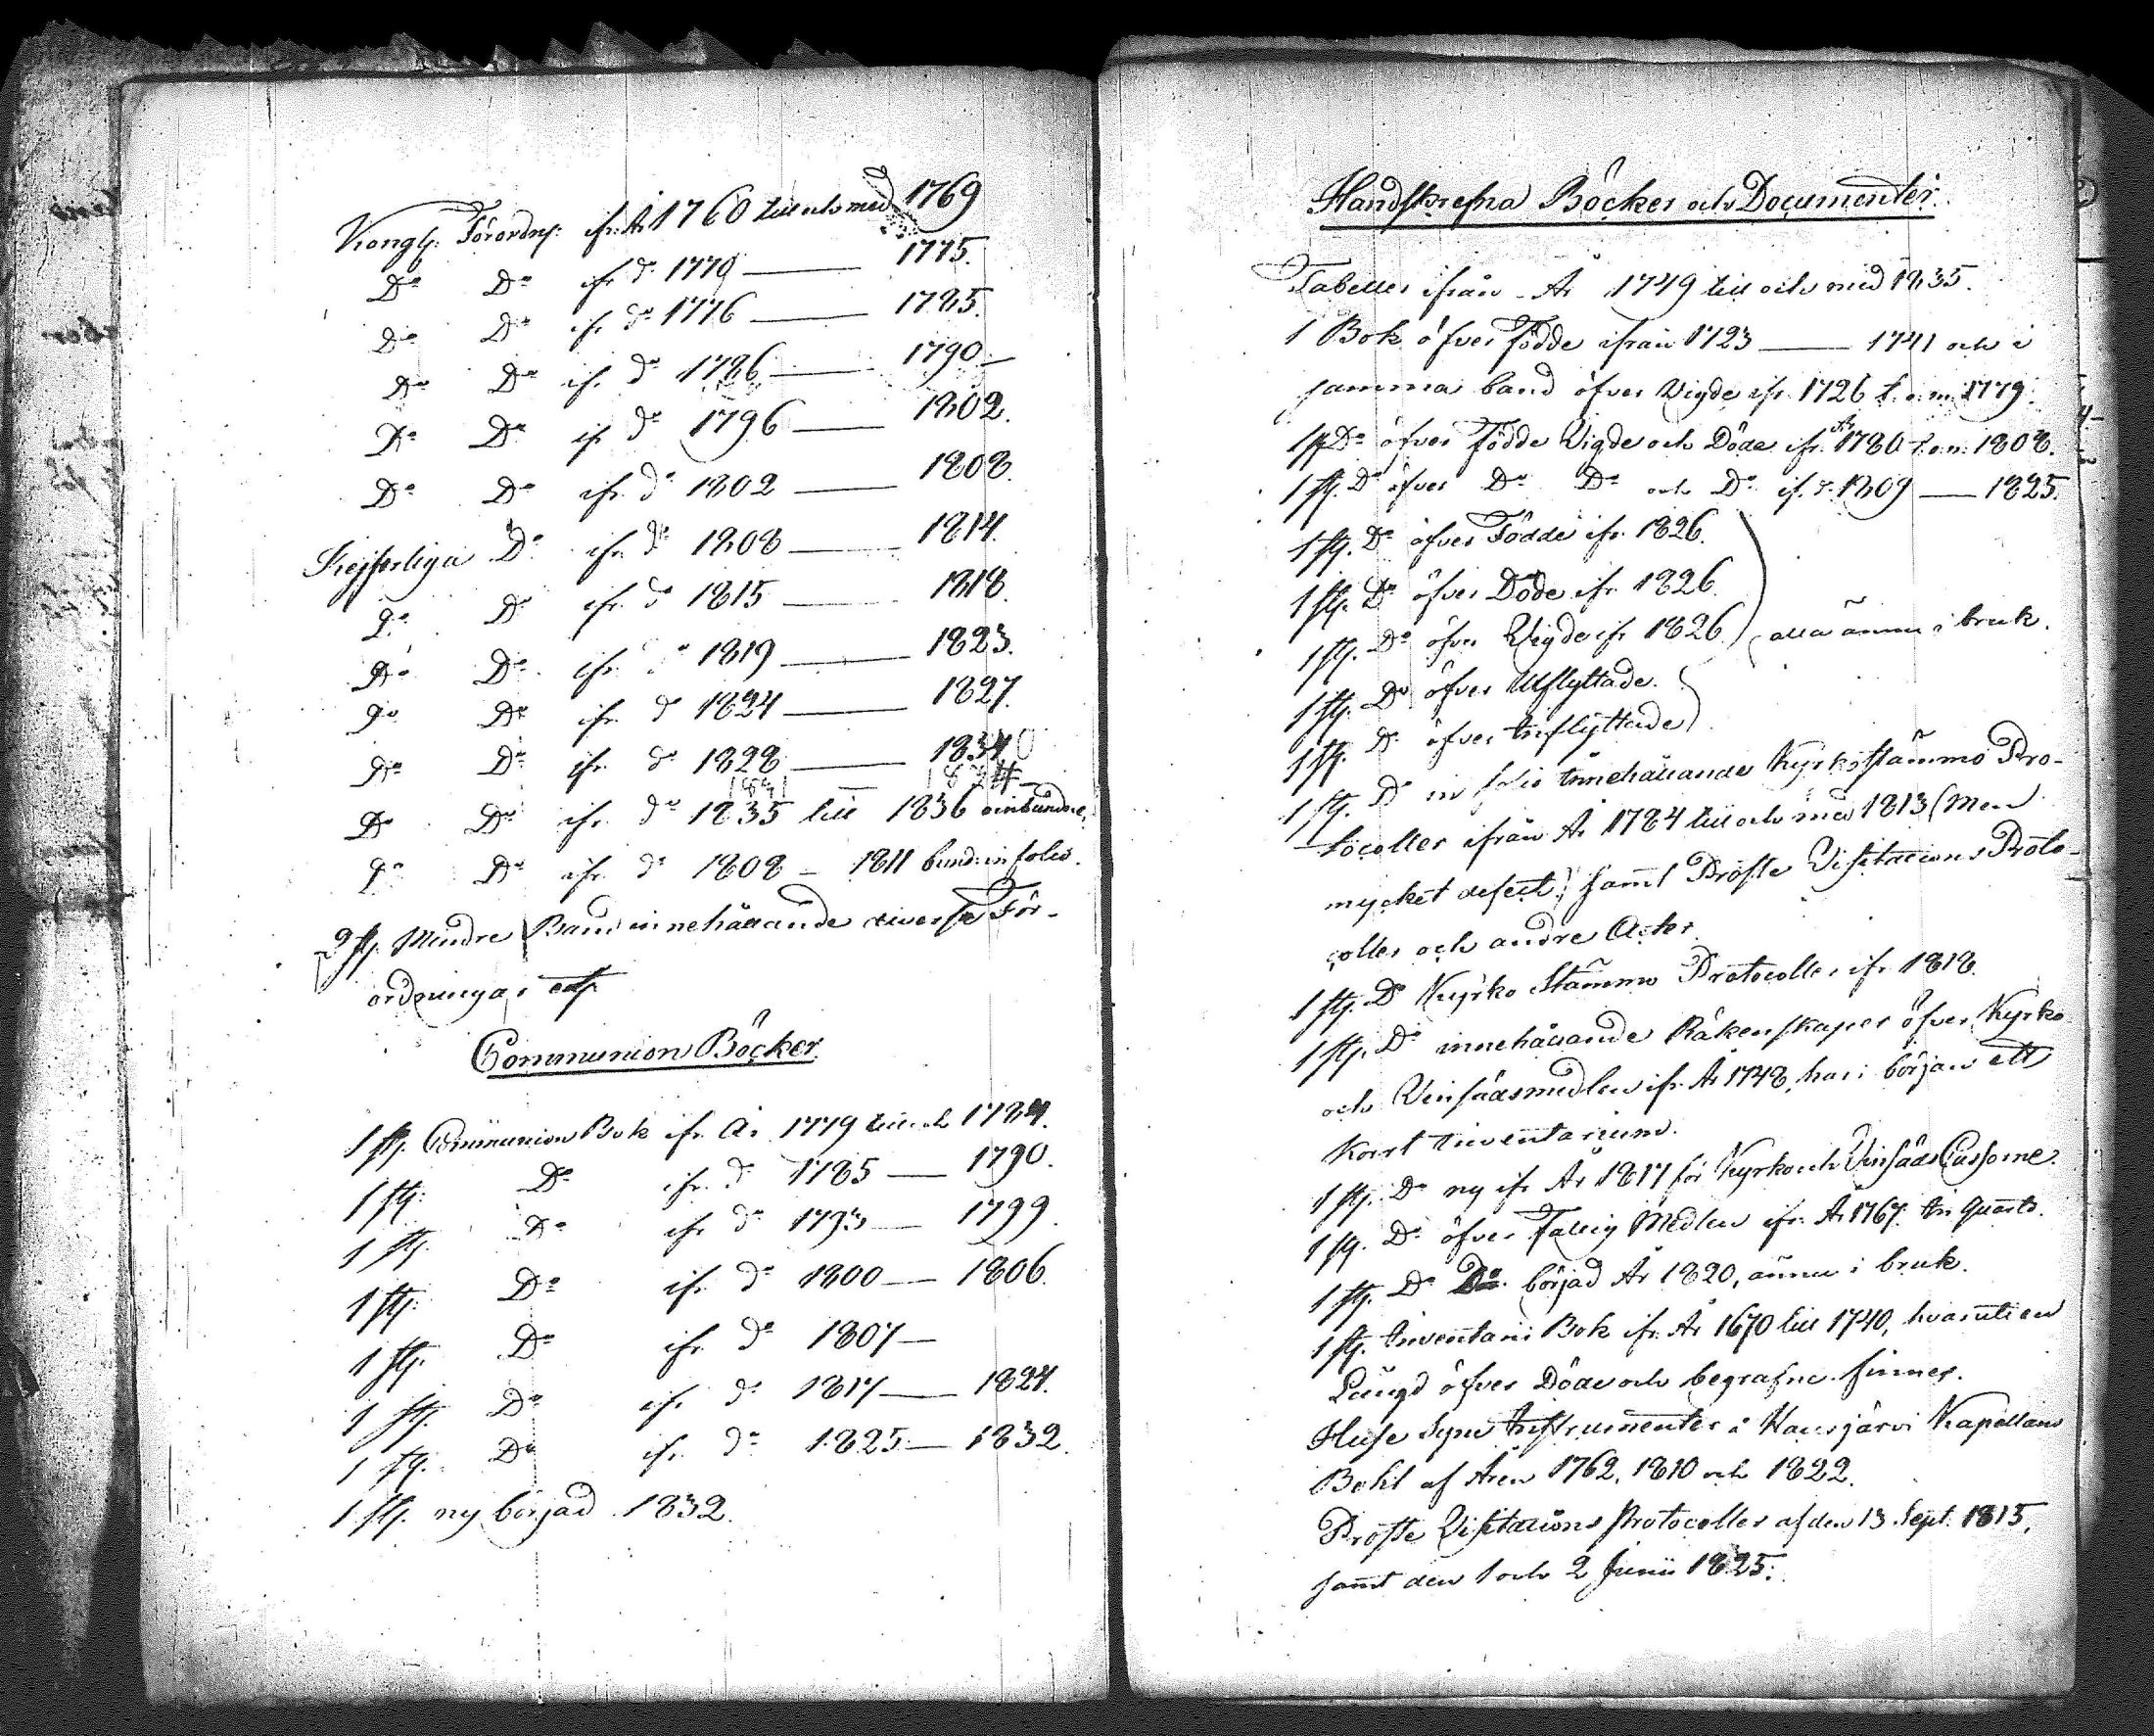 Kongl: Förordn: ifr. År 1760 till och med 1769
Do Do ifr do 1770 — 1775.
Do Do ifr. do 1776 — 1785.
Do Do ifr. do 1786 — 1790 —
Do Do ifr do 1796 — 1802.
Do Do ifr. do 1802 — 1808.
Kejserliga Do ifr. do 1808 — 1814.
Do Do ifr. do 1815 — 1818.
Do Do ifr. do 1819 — 1823.
Do Do ifr. do 1824 — 1827.
Do Do ifr. do 1828 — 1834
Do Do ifr. do 1835 till 1836 oinbundne,
Do Do ifr. do 1808 — 1811 bund: in folio.
9 st. Mindre Band innehållande diverse För-
ordningar
Communion Böcker.
1 st. Communion Bok ifr. År 1779 till och 1784.
1 st. Do ifr. do 1785 — 1790.
1 st. Do ifr do 1793 — 1799.
1 st. Do ifr. do 1800 — 1806.
1 st. Do ifr. do 1807 —
1 st. Do ifr. do 1817 — 1824.
1 st. Do ifr. do 1825 — 1832.
1 st. ny börjad 1832.
Handskrefna Böcker och Documenter.
Tabeller ifrån År 1749 till och med 1835.
1 Bok öfver Födde ifrån 1723 — 1741 och i
samma band öfver Vigde ifr. 1726 t.o.m. 1779.
1 st Do öfver Födde Vigde och Döde ifr. År 1780 t.o.m. 1808.
1 st. Do öfver Do Do och Do if. do 1809 — 1825.
1 st. Do öfver Födde ifr. 1826.
1 st. Do öfver Döde ifr. 1826.
1 st. Do öfver Vigde ifr 1826. alla ännu i bruk.
1 st. Do öfver Utflyttade.
1 st. Do öfver Inflyttade
1 st. Do in folio innehållande Kyrkostämmo Pro-
tocoller ifrån År 1784 till och med 1813 (men
mycket defect) samt Proste Visitations Proto-
coller och andre Acter.
1 st. Do Kyrko Stämmo Protocoller ifr. 1818.
1 st. Do innehållande Räkenskaper öfver Kyrko
och Vinsädsmedlen ifr. År 1748, har i början ett
kort inventarium.
1 st. Do ny ifr År 1817 för Kyrko och Vinsäds Cassorne.
1 st. Do öfver Fattig Medlen ifr. År 1767. in quarto.
1 st. Do Do. börjad År 1820, ännu i bruk.
1 st. Inventarii Bok ifr. År 1670 till 1740, hvaruti en
Längd öfver Döde och begrafne finnes.
Huse Syne Instrumenter å Hausjärvi Kapellans
Bohl af Åren 1762, 1810 och 1822.
Proste Visitations Protocoller af den 13 Sept. 1815,
samt den 1 och 2 Junii 1825.